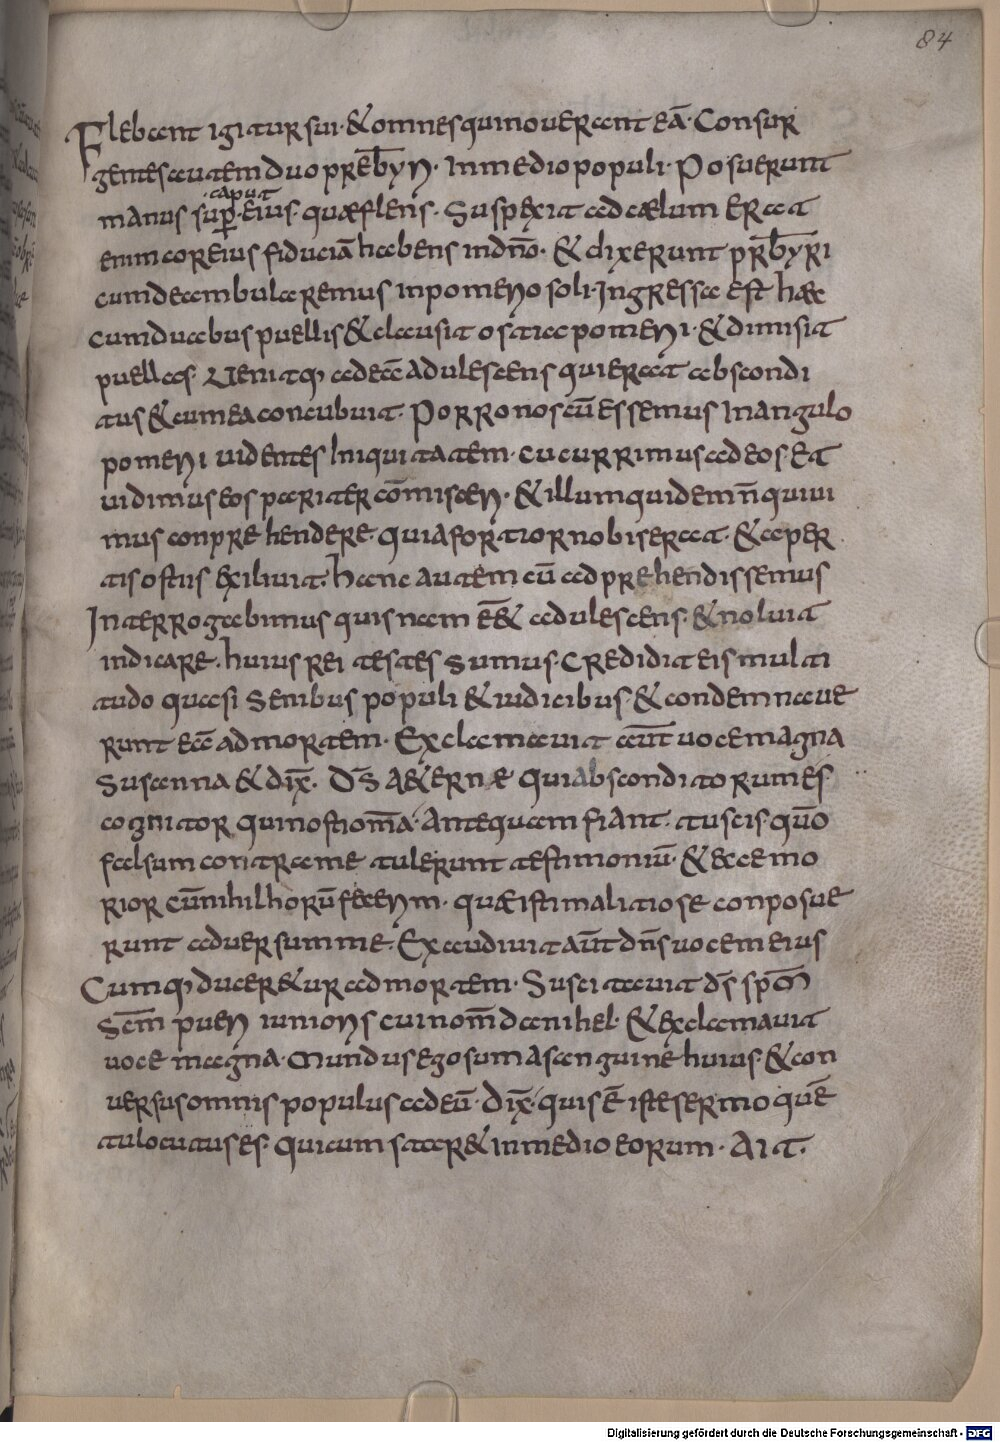 84
Flebant igitur sui· & omnes qui nouerant eã· Consur
gentes autem duo prebẏri· In medio populi· Posuerunt
·caput
manus sup̱·eius· quæ flens· Suspexit ad cælum Erat
enim cor eius fiduciã habens in dñõ· & dixerunt prb̄yri
cum deambularemus in pomerio soli· Ingressa est hæc
cum duabus puellis & clausit ostia pomerii· & dimisit
puellas· Uenitq; ad eã adulescens qui erat abscondi
tus & cum ea concubuit· Porro nos cũ essemus In angulo
pomerii uidentes Iniquitatem· cucurrimus ad eos· Et
uidimus eos pariter cõmisceri· & illum quidem ñ quiui
mus conprehendere· quia fortior nobis erat· & aper
tis ostiis exiliuit· hanc autem cũ adprehendissemus
Interrogabimus quisnam eē& adulescens· & noluit
indicare· huius rei testes sumus· Credidit eis multi
tudo quasi senibus populi & iudicibus· & condemnaue
runt eã ad mortem· Exclamauit aūt uoce magna
Susanna & dix̄· Ds̄ aeterne qui absconditorum es
cognitor qui nosti om̄a· Antequam fiant· tu scis qm̄o
falsum contra me tulerunt testimoniũ· & ecce mo
rior cũ nihil horũ fecerim· quæ isti malitiose conposue
runt aduersum me· Exaudiuit aūt dn̄s uocem eius
Cumq; duceretur ad mortem· Suscitauit ds̄ sp̄m
Scm̄ pueri iunioris cui nom̄ danihel· & exclamauit
uoce magna· Mundus ego sum a sanguine huius· & con
uersus omnis populus ad eũ· Dix̄· quis ē iste sermo quē
tu locutus es· qui cum staret In medio eorum· Ait·
Digitalisierung gefördert durch die Deutsche Forschungsgemeinschaft - DFG